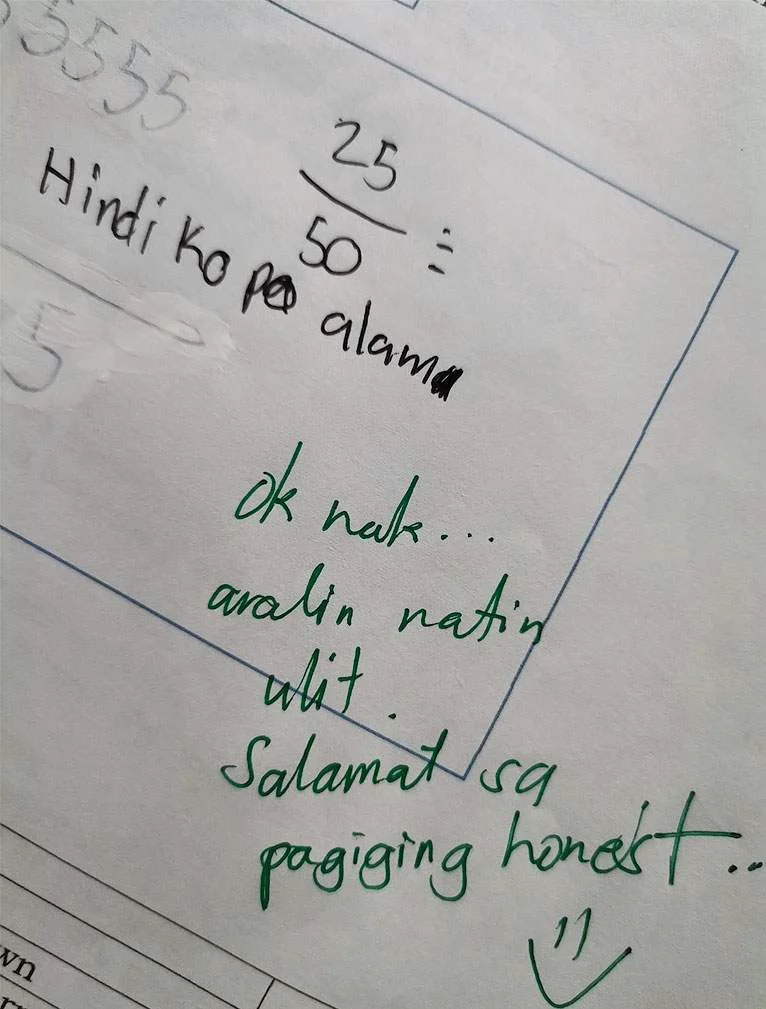 5555
25
50 =
Hindi ko po alam
5
ok nak...
aralin natin
ulit.
Salamat sa
pagiging honest..
wn